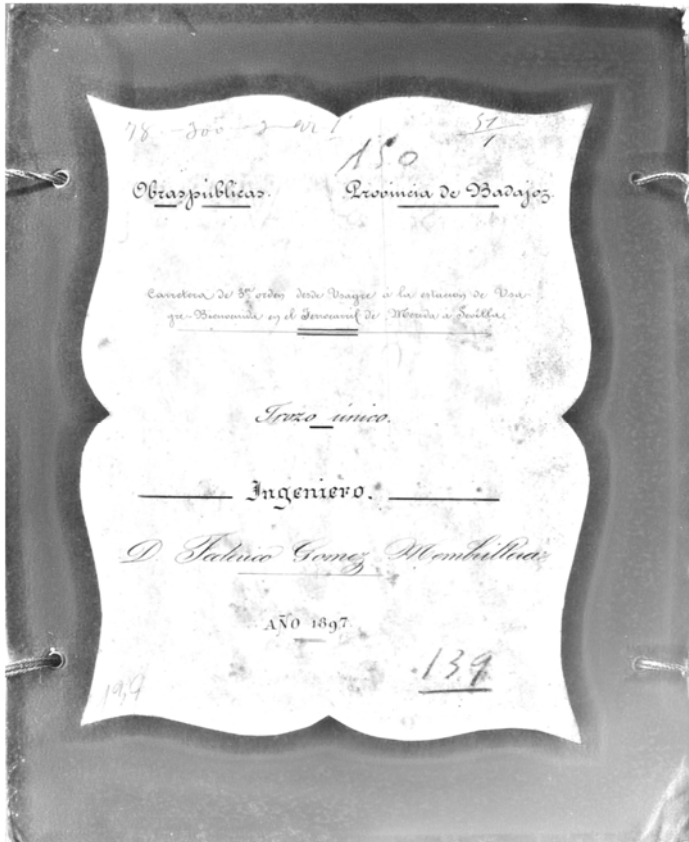 150
51
1
Obras públicas. Provincia de Badajoz.
Carretera de 3er orden desde Usagre á la estacion de Usa-
gre-Bienvenida en el Ferrocarril de Merida a Sevilla.
Trozo único.
Ingeniero.
D. Federico Gomez Membrillera
AÑO 1897
139